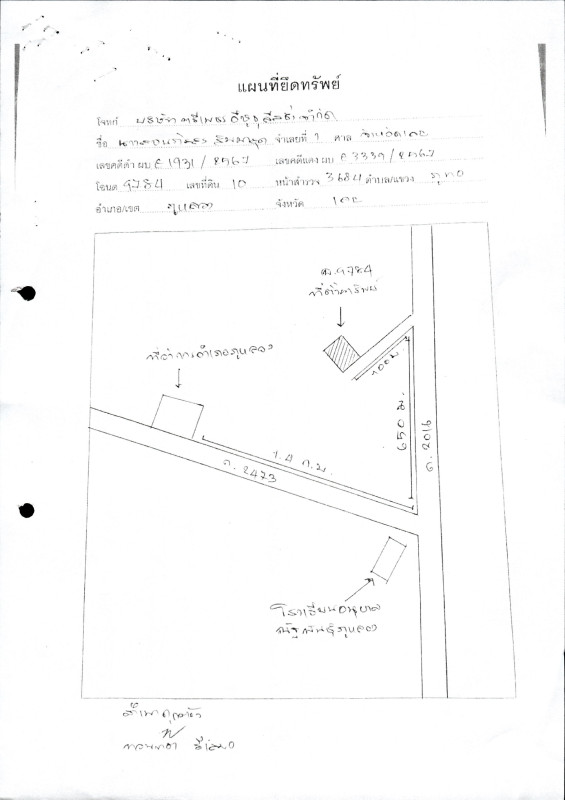 แผนที่ยึดทรัพย์
โจทก์ บริษัท
ชื่อ จำเลยที่ 1 ศาล จังหวัดเลย
เลขคดีดำ ผบ E 1931 / 2567 เลขคดีแดง ผบ E 3339 / 2567
โฉนด 9784 เลขที่ดิน 10 หน้าสำรวจ 3684 ตำบล/แขวง ภูหอ
อำเภอ/เขต ภูหลวง จังหวัด เลย
ฉ. 9784
ที่ตั้งทรัพย์
ที่ว่าการอำเภอภูหลวง
100 ม
650 ม.
ถ. 2016
1.4 ก.ม.
ถ. 2473
โรงเรียนอนุบาล
ภูหลวง
สำเนาถูกต้อง